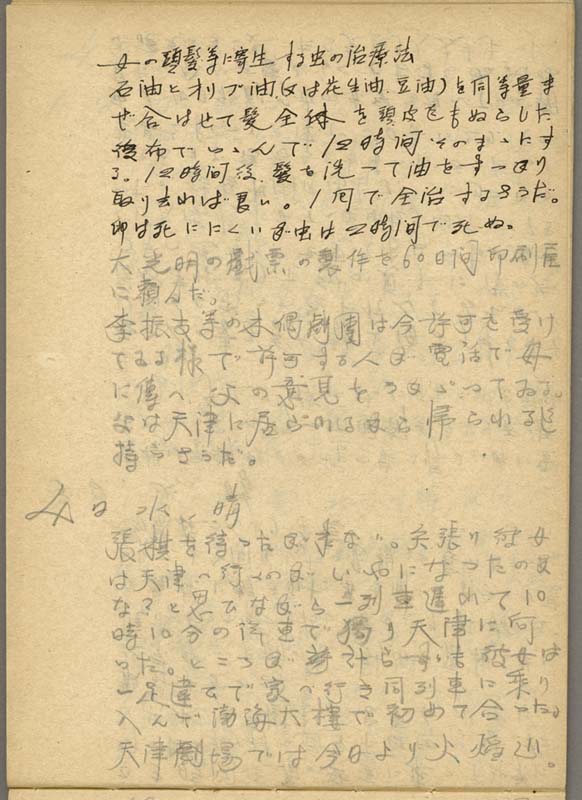 女の頭髪等に寄生する虫の治療法
石油とオリブ油(又は花生油、豆油)を同等量ま
ぜ合はせて髪全体を頭皮をもぬらした
後布でつゝんで12時間そのまゝにす
る。12時間後、髪を洗って油をすっかり
取り去れば良い。1回で全治するさうだ。
卵は死ににくいが虫は2時間で死ぬ。
大光明の戯票の製作を60日間印刷屋
に頼んだ。
李振支等の木偶劇團は今許可を受け
てゐる様で許可する人が電話で母
に傳へ父の意見をうかゞってゐる。
父は天津に居られるから帰られる迄
待つさうだ。
4日 水、晴
張媒を待ったが来ない。矢張り彼女
は天津へ行くのがいやになったのか
な?と思ひながら一列車遅れて10
時10分の汽車で獨り天津に向
った。ところが計らずも彼女は
一足違ひで家へ行き同列車に乗り
入んで渤海大樓で初めて合った。
天津劇場では今日より火燭山。